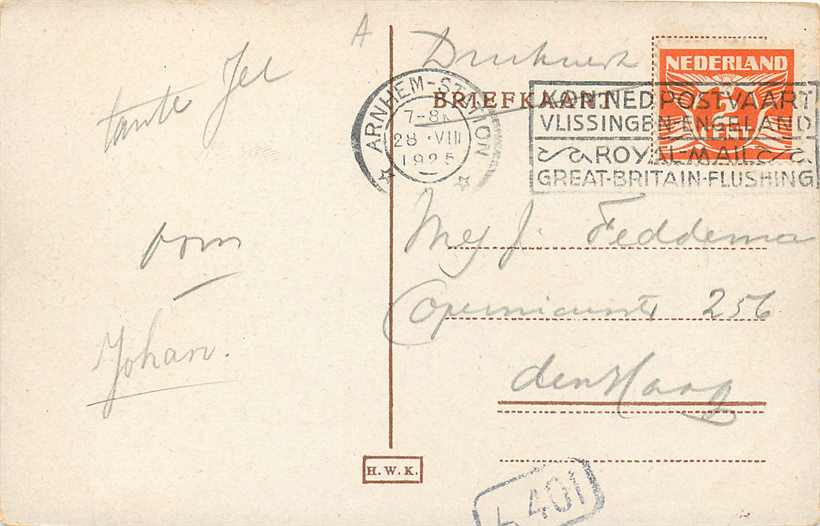 A
tante Jel
von
Johan.
Drukwerk
BRIEFKAART
NEDERLAND
ARNHEM-STATION
7-8
28 · VIII
1925
KON NED POSTVAART
VLISSINGEN-ENGELAND
ROYAL-MAIL
GREAT-BRITAIN-FLUSHING
Mej J. Feddema
Copernicusstr 256
den Haag
H.W.K.
401